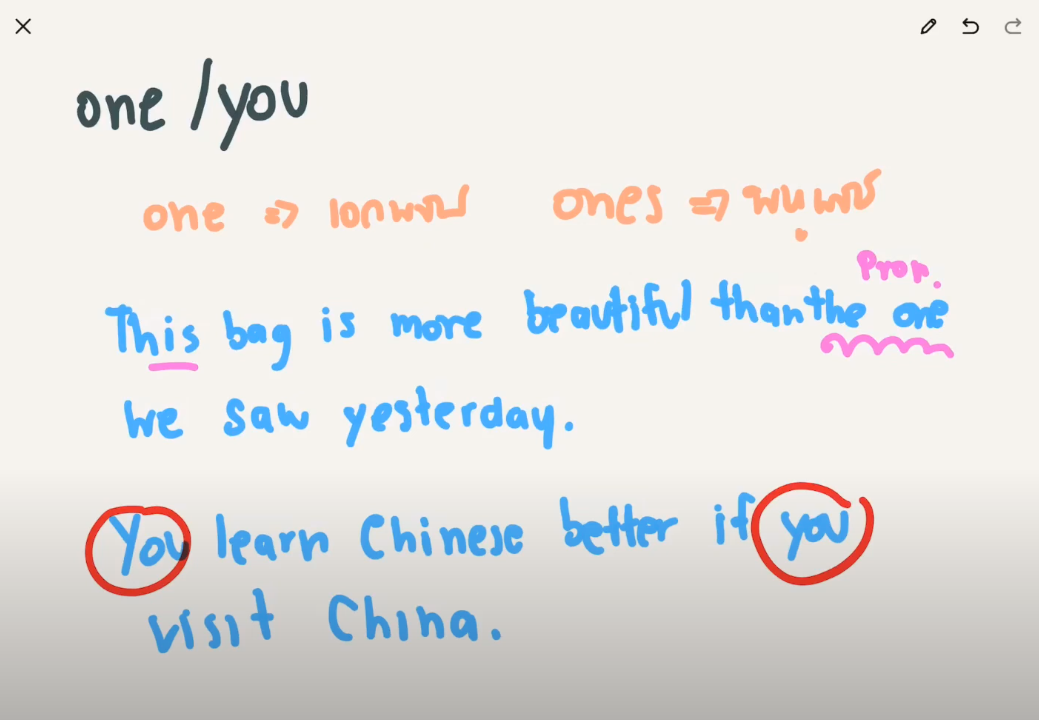 one / you
one => เอกพจน์ ones => พหูพจน์
Pron.
This bag is more beautiful than the one
we saw yesterday.
You learn Chinese better if you
visit China.